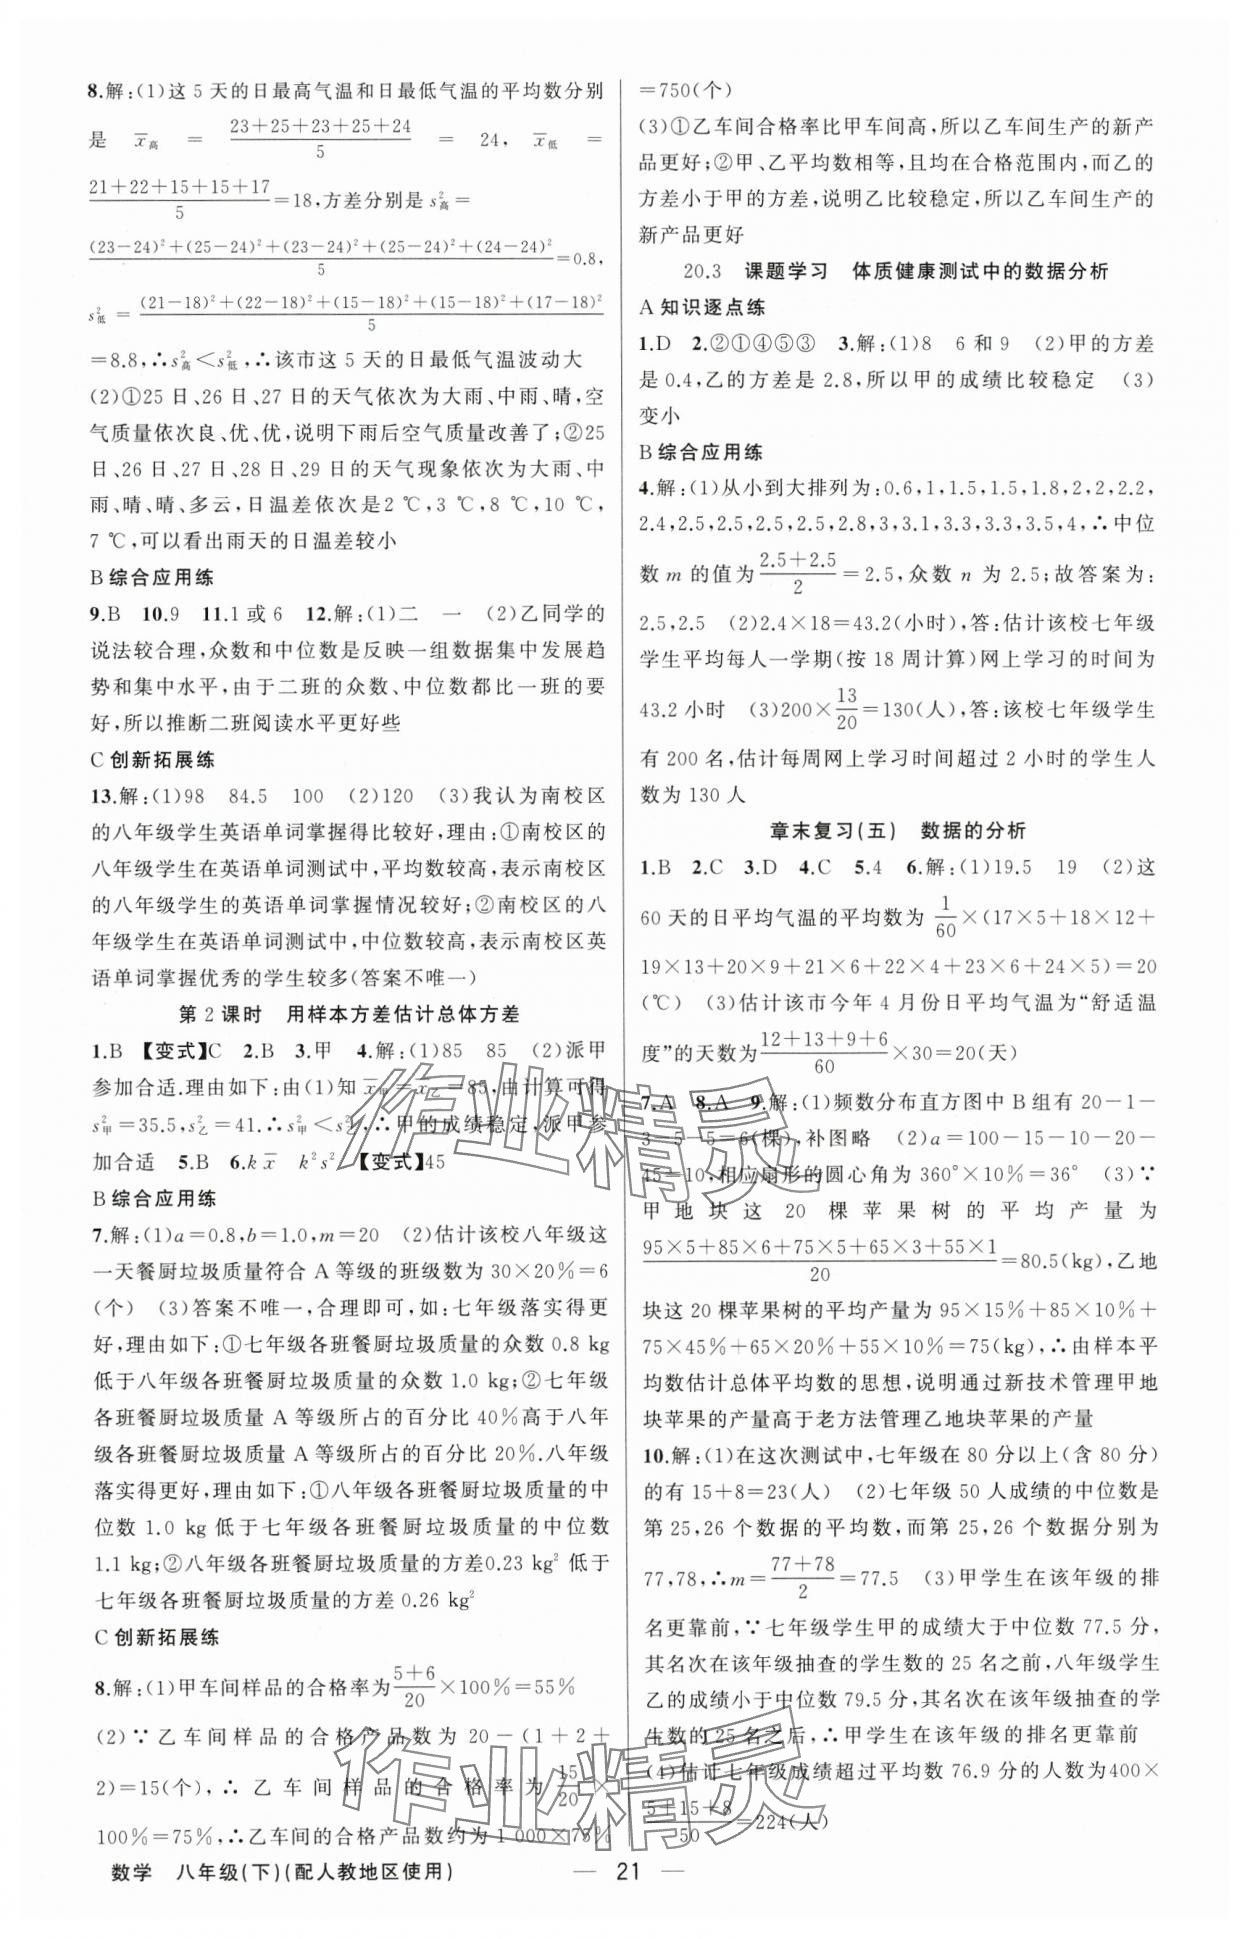 8.解:(1)这 5 天的日最高气温和日最低气温的平均数分别
是 x̄高 = (23+25+23+25+24)/5 = 24, x̄低 =
(21+22+15+15+17)/5=18,方差分别是 s²高=
((23-24)²+(25-24)²+(23-24)²+(25-24)²+(24-24)²)/5=0.8,
s²低=((21-18)²+(22-18)²+(15-18)²+(15-18)²+(17-18)²)/5
=8.8,∴s²高<s²低,∴该市这 5 天的日最低气温波动大
(2)①25 日、26 日、27 日的天气依次为大雨、中雨、晴,空
气质量依次良、优、优,说明下雨后空气质量改善了;②25
日、26 日、27 日、28 日、29 日的天气现象依次为大雨、中
雨、晴、晴、多云,日温差依次是2 ℃,3 ℃,8 ℃,10 ℃,
7 ℃,可以看出雨天的日温差较小
B 综合应用练
9.B 10.9 11.1 或 6 12.解:(1)二 一 (2)乙同学的
说法较合理,众数和中位数是反映一组数据集中发展趋
势和集中水平,由于二班的众数、中位数都比一班的要
好,所以推断二班阅读水平更好些
C 创新拓展练
13.解:(1)98 84.5 100 (2)120 (3)我认为南校区
的八年级学生英语单词掌握得比较好,理由:①南校区的
八年级学生在英语单词测试中,平均数较高,表示南校区
的八年级学生的英语单词掌握情况较好;②南校区的八
年级学生在英语单词测试中,中位数较高,表示南校区英
语单词掌握优秀的学生较多(答案不唯一)
第 2 课时 用样本方差估计总体方差
1.B 【变式】C 2.B 3.甲 4.解:(1)85 85 (2)派甲
参加合适.理由如下:由(1)知 x̄甲=x̄乙=85,由计算可得
s²甲=35.5,s²乙=41.∴s²甲<s²乙,∴甲的成绩稳定,派甲参
加合适 5.B 6.k x̄ k²s² 【变式】45
B 综合应用练
7.解:(1)a=0.8,b=1.0,m=20 (2)估计该校八年级这
一天餐厨垃圾质量符合 A 等级的班级数为 30×20%=6
(个) (3)答案不唯一,合理即可,如:七年级落实得更
好,理由如下:①七年级各班餐厨垃圾质量的众数 0.8 kg
低于八年级各班餐厨垃圾质量的众数 1.0 kg;②七年级
各班餐厨垃圾质量 A 等级所占的百分比 40%高于八年
级各班餐厨垃圾质量 A 等级所占的百分比 20%.八年级
落实得更好,理由如下:①八年级各班餐厨垃圾质量的中
位数 1.0 kg 低于七年级各班餐厨垃圾质量的中位数
1.1 kg;②八年级各班餐厨垃圾质量的方差0.23 kg² 低于
七年级各班餐厨垃圾质量的方差 0.26 kg²
C 创新拓展练
8.解:(1)甲车间样品的合格率为(5+6)/20×100%=55%
(2)∵乙车间样品的合格产品数为 20-(1+2+
2)=15(个),∴乙车间样品的合格率为 15/20 ×
100%=75%,∴乙车间的合格产品数约为 1 000×75%
=750(个)
(3)①乙车间合格率比甲车间高,所以乙车间生产的新产
品更好;②甲、乙平均数相等,且均在合格范围内,而乙的
方差小于甲的方差,说明乙比较稳定,所以乙车间生产的
新产品更好
20.3 课题学习 体质健康测试中的数据分析
A 知识逐点练
1.D 2.②①④⑤③ 3.解:(1)8 6 和 9 (2)甲的方差
是 0.4,乙的方差是 2.8,所以甲的成绩比较稳定 (3)
变小
B 综合应用练
4.解:(1)从小到大排列为:0.6,1,1.5,1.5,1.8,2,2,2.2,
2.4,2.5,2.5,2.5,2.5,2.8,3,3.1,3.3,3.3,3.5,4,∴中位
数 m 的值为(2.5+2.5)/2=2.5,众数 n 为 2.5;故答案为:
2.5,2.5 (2)2.4×18=43.2(小时),答:估计该校七年级
学生平均每人一学期(按 18 周计算)网上学习的时间为
43.2 小时 (3)200×13/20=130(人),答:该校七年级学生
有 200 名,估计每周网上学习时间超过 2 小时的学生人
数为 130 人
章末复习(五) 数据的分析
1.B 2.C 3.D 4.C 5.4 6.解:(1)19.5 19 (2)这
60 天的日平均气温的平均数为 1/60×(17×5+18×12+
19×13+20×9+21×6+22×4+23×6+24×5)=20
(℃) (3)估计该市今年 4 月份日平均气温为“舒适温
度”的天数为(12+13+9+6)/60×30=20(天)
7.A 8.A 9.解:(1)频数分布直方图中 B 组有 20-1-
3-5-5=6(棵),补图略 (2)a=100-15-10-20-
45=10,相应扇形的圆心角为 360°×10%=36° (3)∵
甲地块这 20 棵苹果树的平均产量为
(95×5+85×6+75×5+65×3+55×1)/20=80.5(kg),乙地
块这 20 棵苹果树的平均产量为 95×15%+85×10%+
75×45%+65×20%+55×10%=75(kg),∴由样本平
均数估计总体平均数的思想,说明通过新技术管理甲地
块苹果的产量高于老方法管理乙地块苹果的产量
10.解:(1)在这次测试中,七年级在 80 分以上(含 80 分)
的有 15+8=23(人) (2)七年级 50 人成绩的中位数是
第 25,26 个数据的平均数,而第 25,26 个数据分别为
77,78,∴m=(77+78)/2=77.5 (3)甲学生在该年级的排
名更靠前,∵七年级学生甲的成绩大于中位数 77.5 分,
其名次在该年级抽查的学生数的 25 名之前,八年级学生
乙的成绩小于中位数 79.5 分,其名次在该年级抽查的学
生数的 25 名之后,∴甲学生在该年级的排名更靠前
(4)估计七年级成绩超过平均数 76.9 分的人数为400×
(5+15+8)/50=224(人)
数学 八年级(下)(配人教地区使用)
— 21 —
作业精灵
作业精灵